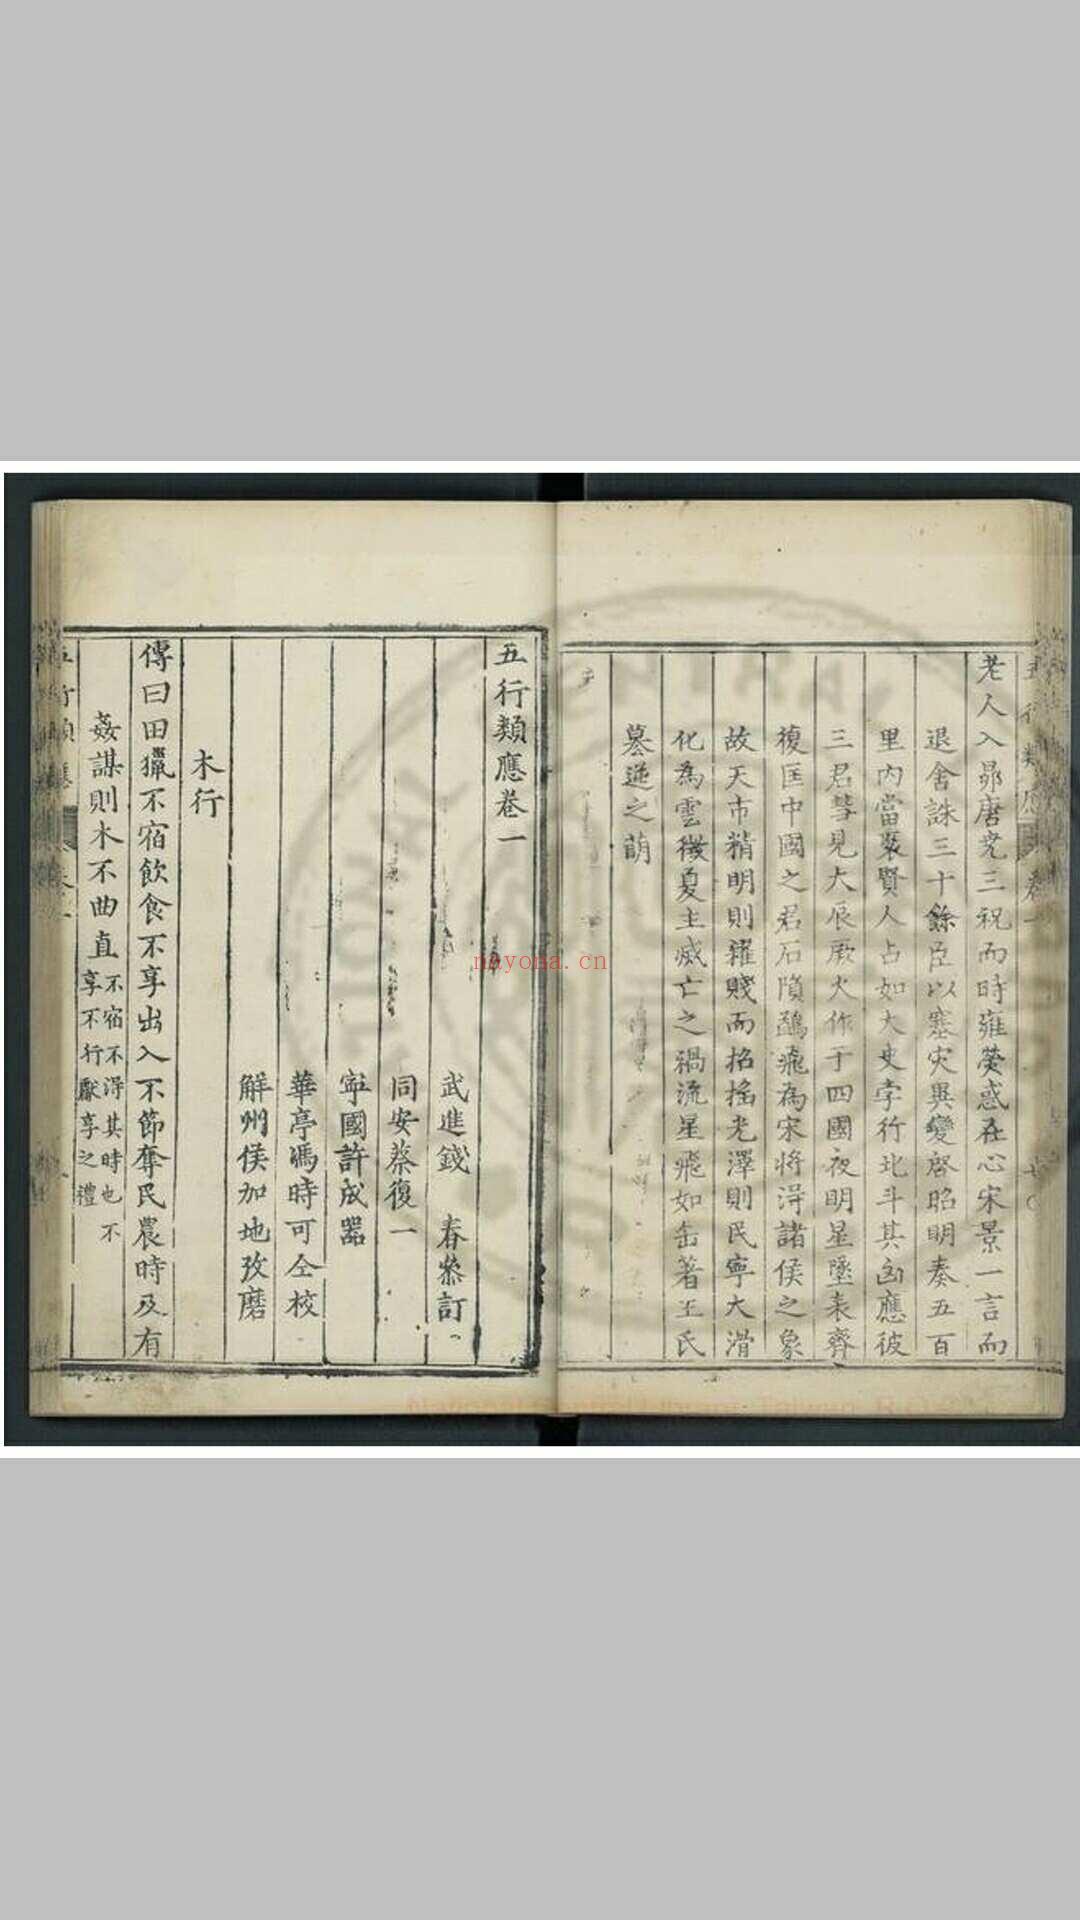 老人入昴唐尧三祝而時雍熒惑在心宋景一言而
退舍誅三十餘臣以塞灾異變啓昭明奏五百
里内當聚賢人占如大史孛行北斗其凶應彼
三君彗見大辰厥火作于四國夜明星墜表齊
復匡中國之君石隕鷁飛為宋將淂諸侯之象
故天市精明則糴賤而招搖光澤則民寧大滑
化為雲徵夏主滅亡之禍流星飛如缶著王氏
簒逆之萌
五行類應卷一
武進錢 春叅訂
同安蔡復一
寧國許成器
華亭馮時可仝校
解州侯加地孜磨
木行
傳曰田獵不宿飲食不享出入不節奪民農時及有
姦謀則木不曲直
不宿不淂其時也不
享不行獻享之禮
nayona.cn